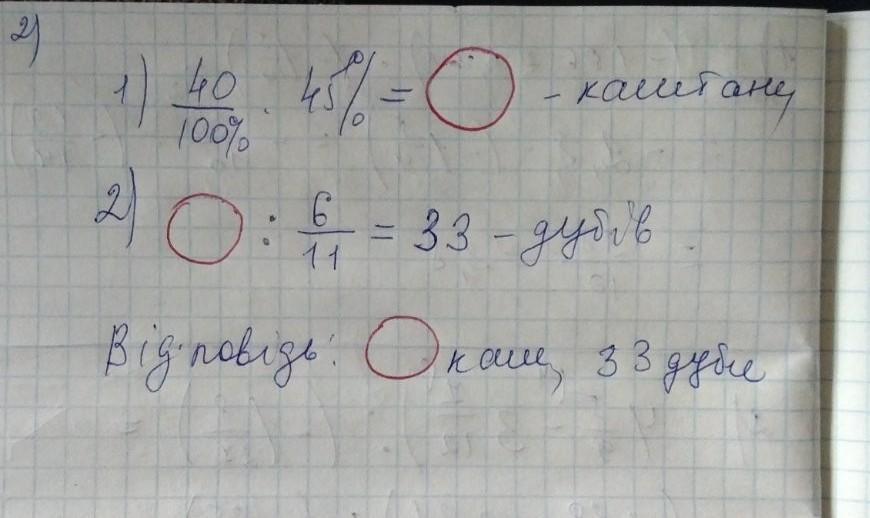 2)
1) 40/100% · 45% = ◯ - каштану
2) ◯ : 6/11 = 33 - дубів
Відповідь: ◯ каш, 33 дуби